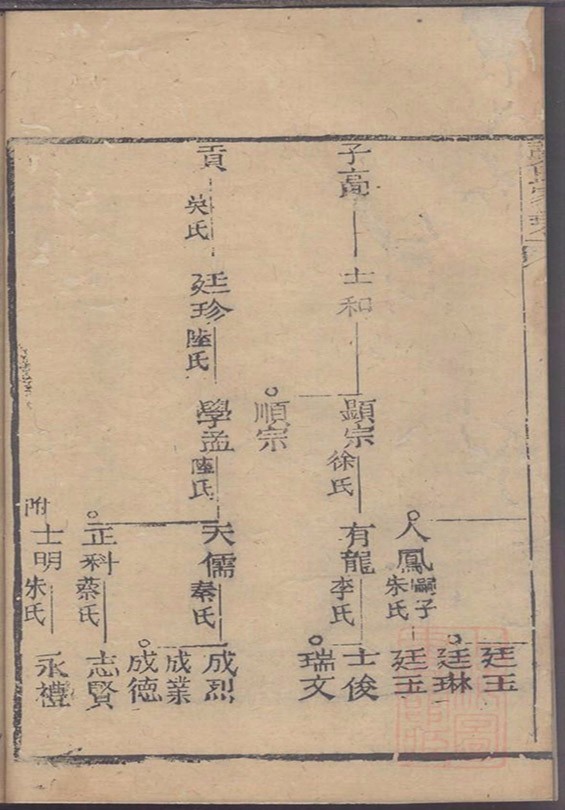 廷玉
廷琳
人鳳 嗣子 朱氏
廷玉
子高
士和
顯宗 徐氏
有龍 李氏
士俊
瑞文
順宗
貢 吳氏
廷珍 陸氏
學孟 陸氏
天儒 秦氏
成烈
成業
成德
正科 蔡氏
志賢
附 士明 朱氏
永禮